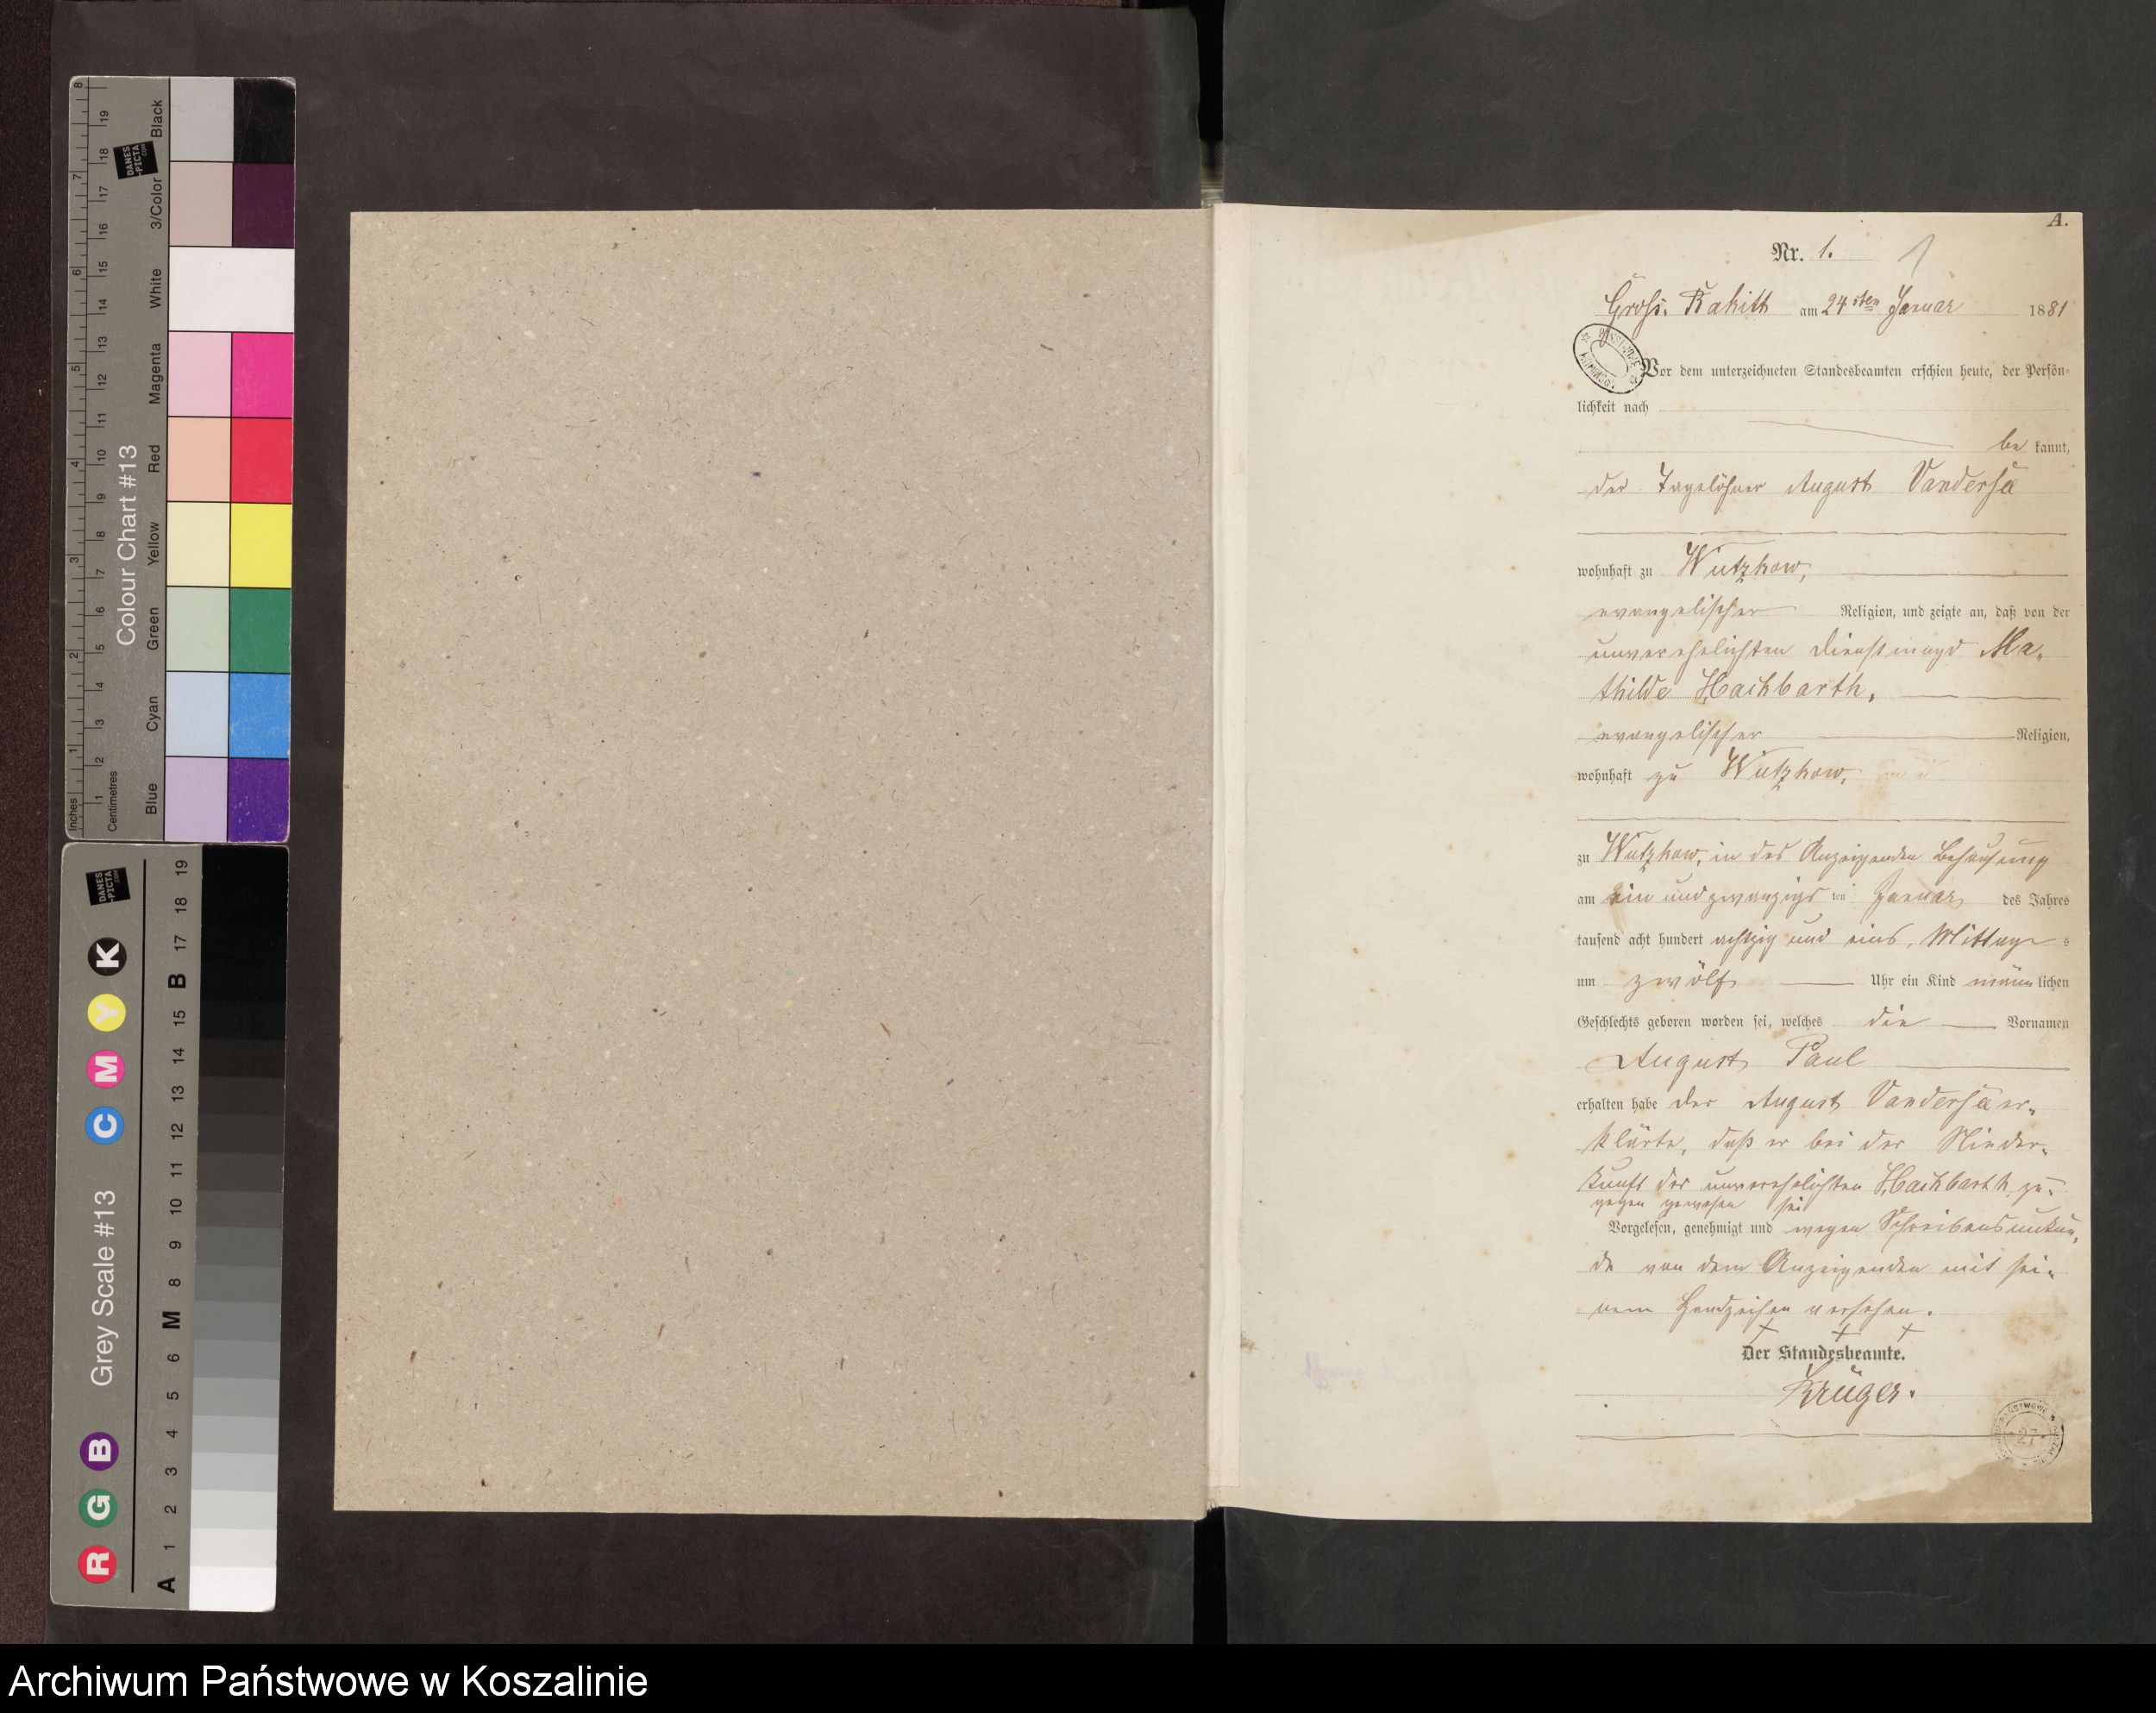 A.
Nr. 1. 1
Gross. Rakitt am 24sten Januar 1881
Vor dem unterzeichneten Standesbeamten erschien heute, der Persön-
lichkeit nach
be kannt,
der Tagelöhner August Vandersee
wohnhaft zu Wutzkow,
evangelischer Religion, und zeigte an, daß von der
unverehelichten Dienstmagd Ma-
thilde Hackbarth,
evangelischer Religion,
wohnhaft zu Wutzkow,
zu Wutzkow, in des Anzeigenden Behausung
am ein und zwanzigsten Januar des Jahres
tausend acht hundert achtzig und eins, Mittags
um zwölf Uhr ein Kind männlichen
Geschlechts geboren worden sei, welches die Vornamen
August Paul
erhalten habe der August Vandersee er-
klärte, daß er bei der Nieder-
kunft der unverehelichten Hackbarth zu-
gegen gewesen sei
Vorgelesen, genehmigt und wegen Schreibensunkun-
de von dem Anzeigenden mit sei-
nem Handzeichen versehen.
+ + +
Der Standesbeamte.
Krüger.
27
Colour Chart #13
Blue Cyan Green Yellow Red Magenta White 3/Color Black
Inches 1 2 3 4 5 6 7 8
Centimetres 1 2 3 4 5 6 7 8 9 10 11 12 13 14 15 16 17 18 19
DANES PICTA .COM
Grey Scale #13
R G B C M Y K
A 1 2 3 4 5 6 M 8 9 10 11 12 13 14 15 B 17 18 19
DANES PICTA .COM
Archiwum Państwowe w Koszalinie